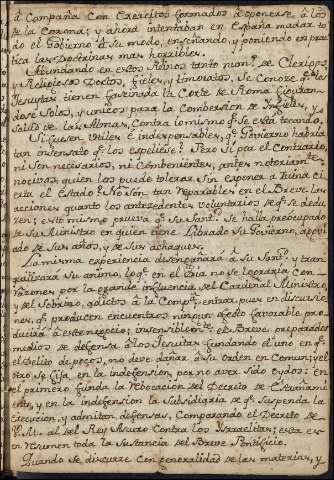 à Campaña Con Exercitos formados à oponerse à los
de la Corona; y ahora intentaban en España mudar to
do el Govierno à su modo, enseñando, y poniendo en prac
tica las Doctrinas mas horribles.
Abundando en estos Reinos tanto num.º de Clerigos,
y Religiosos Doctos, fieles, y timoratos, Se Conoze q.e los
Jesuytas tienen fascinada la Corte de Roma figuran
dose Solos, y unicos para la Combersion de Infieles, y
Salud de las Almas, Contra lo mismo q.e se està tocando.
Si fuesen Utiles è indespensables, q.e Govierno habria
tan insensato q.e los espeliese? Pero si por el Contrario,
ni Son necesarios, ni Combenientes, antes notoriam.te
nocivos, quien los puede tolerar Sin exponer à ruina ci
erta el Estado? No Son tan reparables en el Breve las
ecciones quanto los antecedentes voluntarios de q.e se dedu
zen; esto mismo prueva q.e Su Sant.d Se halla preocupado
de su Ministro en quien tiene Librado Su Govierno, apoy
ado de Sus años, y de Sus achaques.
La misma experiencia desengañarà à Su Sant.d y tran
quilizarà Su animo, lo q.e en el dia no se lograria con
razones por la grande influencia del Cardenal Ministro,
y del Sobrino, adictos à la Comp.a; entrar pues en discusio
nes, q.e producen encuentros ningun efecto favorable pro
ducirà à este negocio; insensiblem.te el Breve preparados
medios de defensa à los Jesuitas fundando el uno en q.e
el Delito de pocos, no deve dañar à su Orden en Comun; y el
otro se fija, en la indefension por no aver sido oydos: en
el primero funda la rebocacion del Decreto de Estrañami
ento, y en la indefension la Subsidiaria de q.e Suspenda la
Execucion, y admitan defensas, Comparando el Decreto de
V. M. al del Rey Asuero Contra los Israelitas; esta es
en resumen toda la Sustancia del Breve Pontificio.
Quando Se discurre Con generalidad de las materias, y